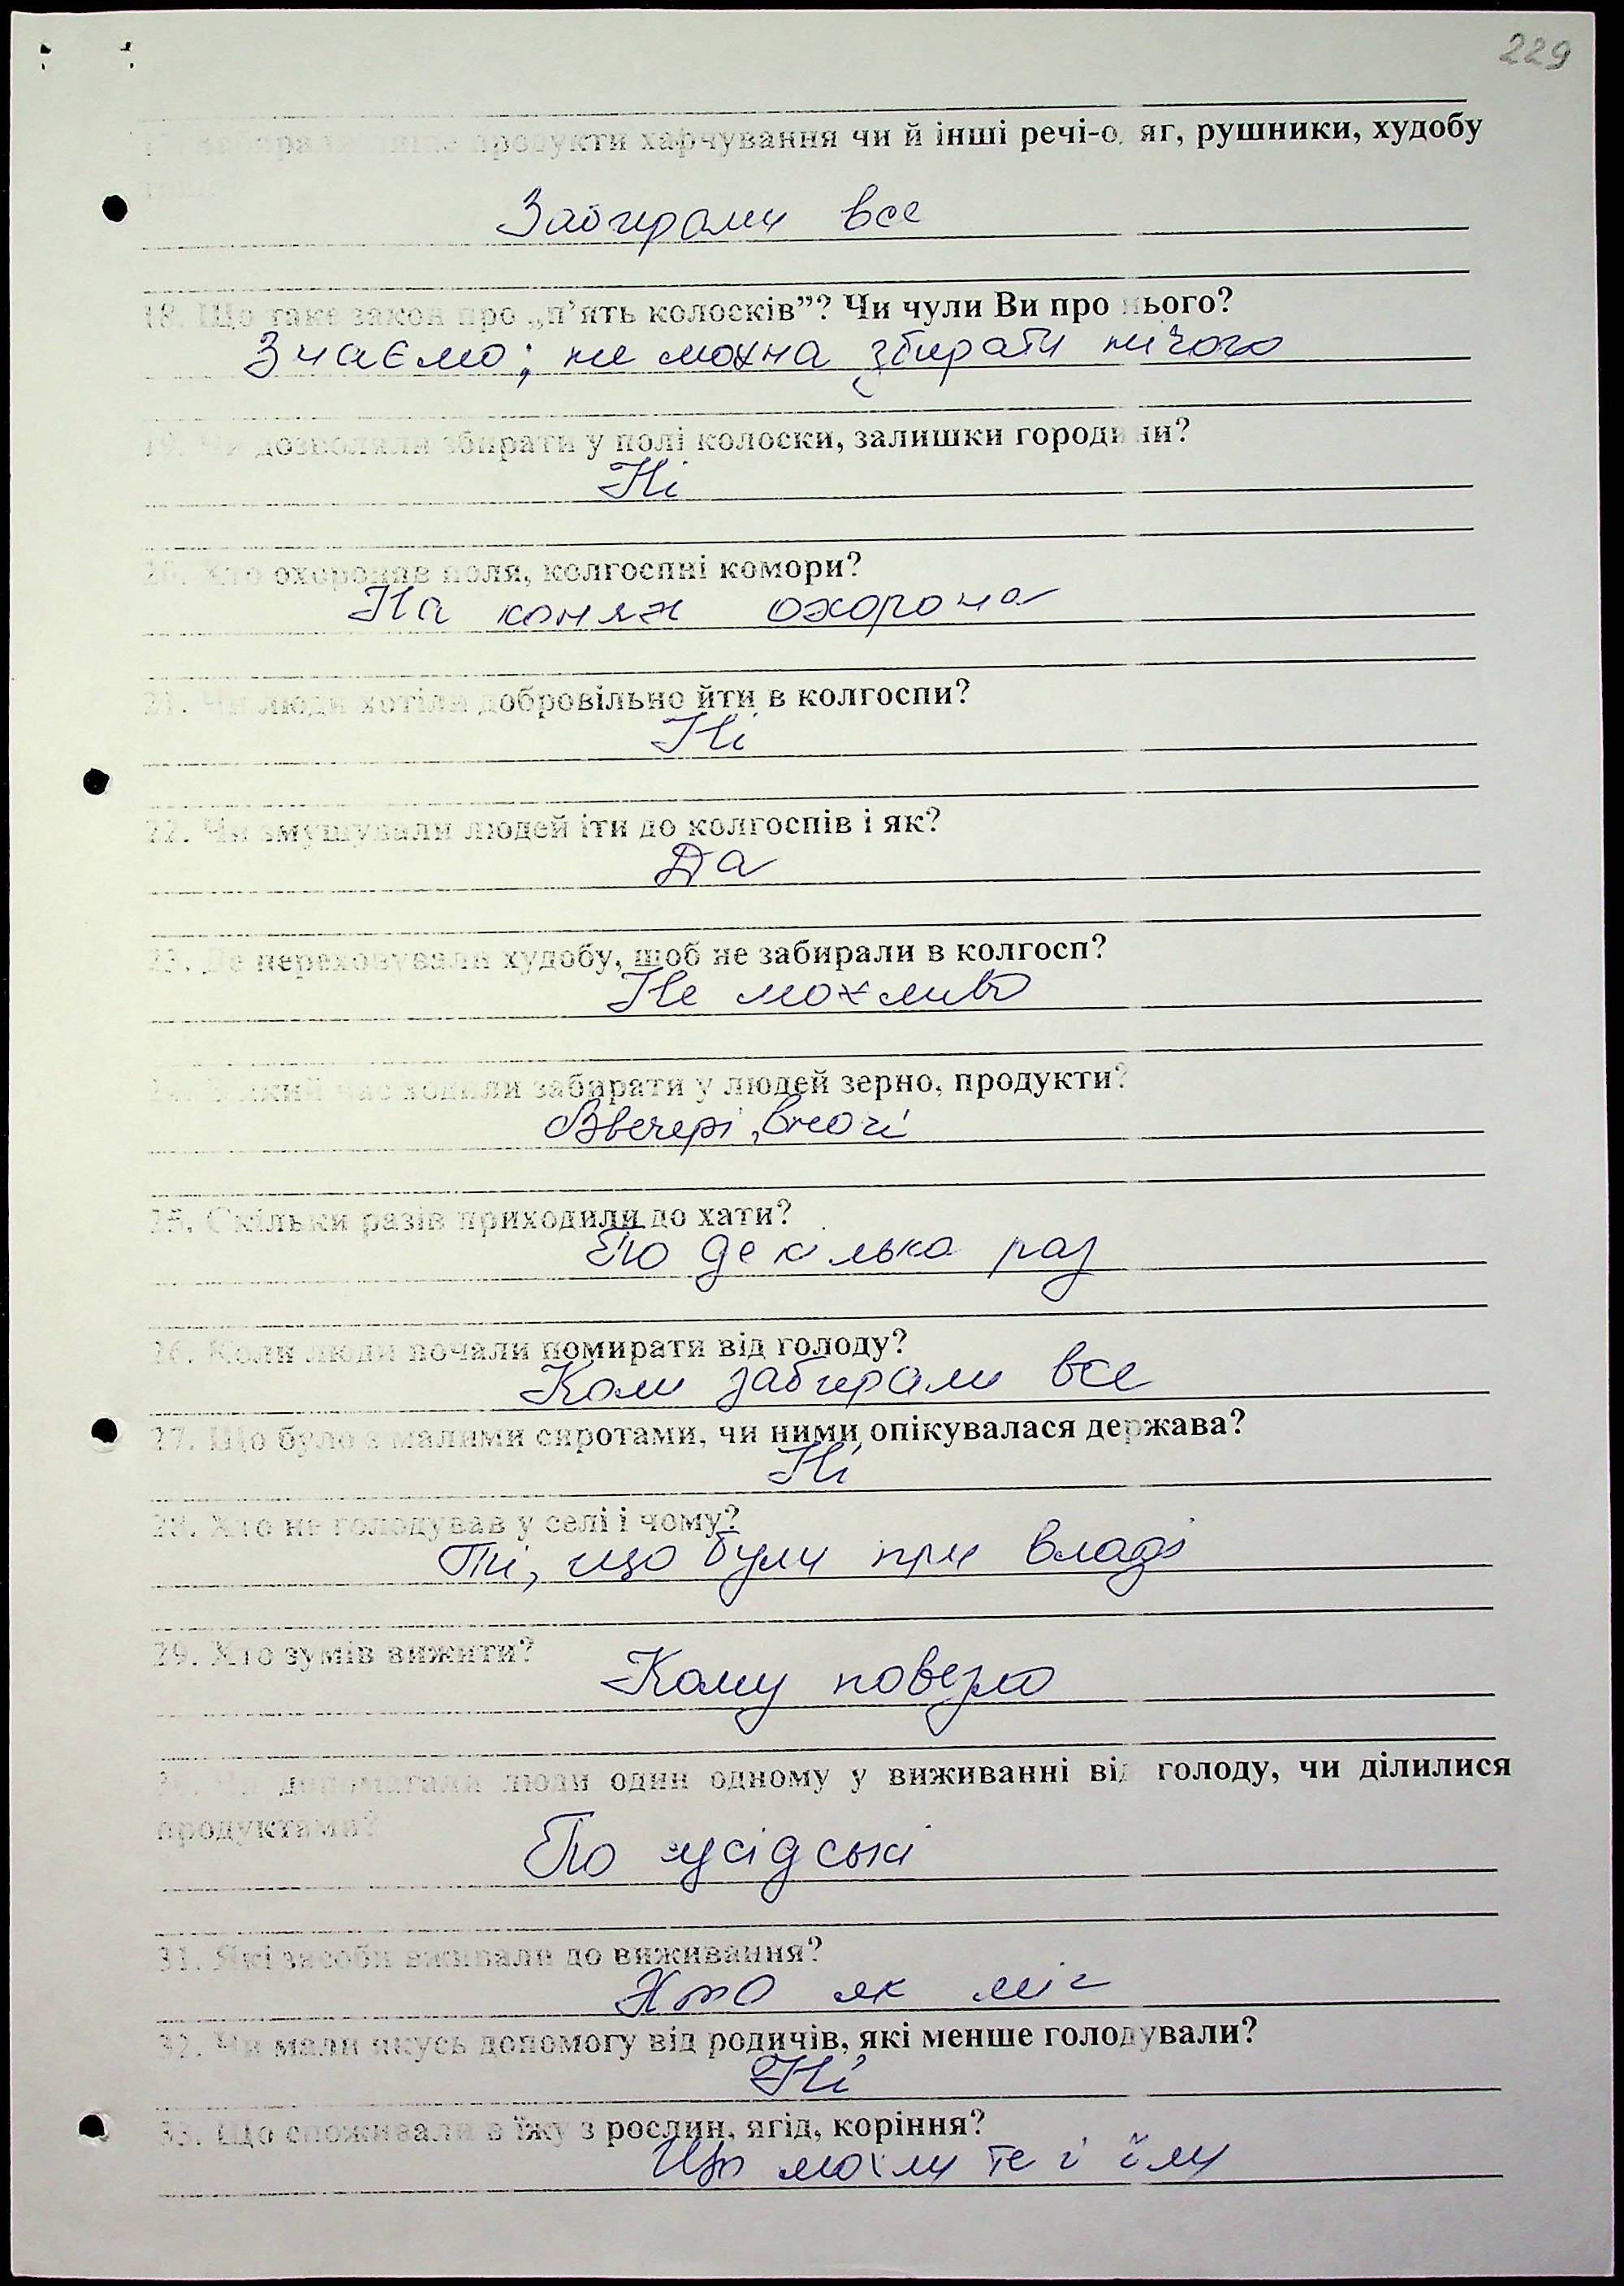 229
17. Забирали лише продукти харчування чи й інші речі-одяг, рушники, худобу
Забирали все
18. Що таке закон про „п’ять колосків”? Чи чули Ви про нього?
Знаємо; не можна збирати нічого
19. Чи дозволяли збирати у полі колоски, залишки городини?
Ні
20. Хто охороняв поля, колгоспні комори?
На конях охорона
21. Чи люди хотіли добровільно йти в колгоспи?
Ні
22. Чи змушували людей іти до колгоспів і як?
Да
23. Де переховували худобу, щоб не забирали в колгосп?
Неможливо
24. В який час ходили забирати у людей зерно, продукти?
Ввечері, вночі
25. Скільки разів приходили до хати?
По декілька раз
26. Коли люди почали помирати від голоду?
Коли забирали все
27. Що було з малими сиротами, чи ними опікувалася держава?
Ні
28. Хто не голодував у селі і чому?
Ті, що були при владі
29. Хто зумів вижити?
Кому повезло
30. Чи допомагали люди один одному у виживанні від голоду, чи ділилися
продуктами?
По усідські
31. Які засоби вживали до виживання?
Хто як міг
32. Чи мали якусь допомогу від родичів, які менше голодували?
Ні
33. Що споживали в їжу з рослин, ягід, коріння?
Що могли те і їли